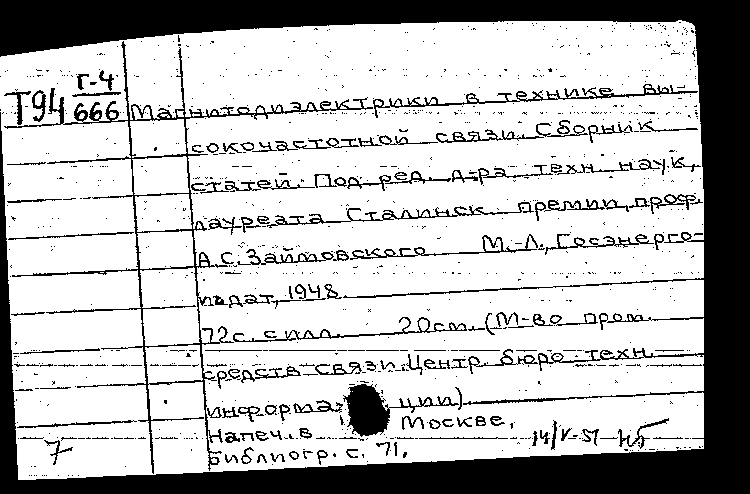 Г-4
Т94 666 Магнитодиэлектрики в технике вы-
сокочастотной связи. Сборник
статей. Под ред. д-ра техн. наук,
лауреата Сталинск. премии, проф.
А.С. Займовского М.-Л., Госэнерго-
издат, 1948.
72с. с илл. 20см. (М-во пром.
средств связи. Центр. бюро техн.
информации).
Напеч. в Москве.
Библиогр. с. 71.
7 14/V-51